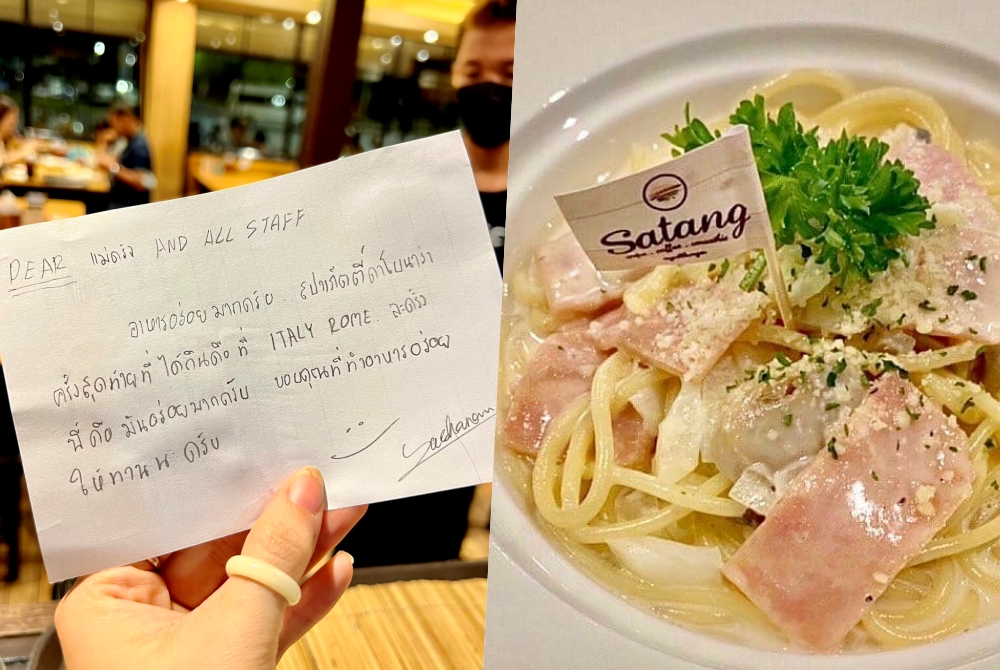 DEAR แม่ครัว AND ALL STAFF
อาหารอร่อยมากครับ สปาเก็ตตี้คาโบนาร่า
ครั้งสุดท้ายที่ได้กินคือที่ ITALY ROME. และครั้ง
นี้ คือ มันอร่อยมากครับ ขอบคุณที่ทำอาหารอร่อย
ให้ทานนะครับ
Satang